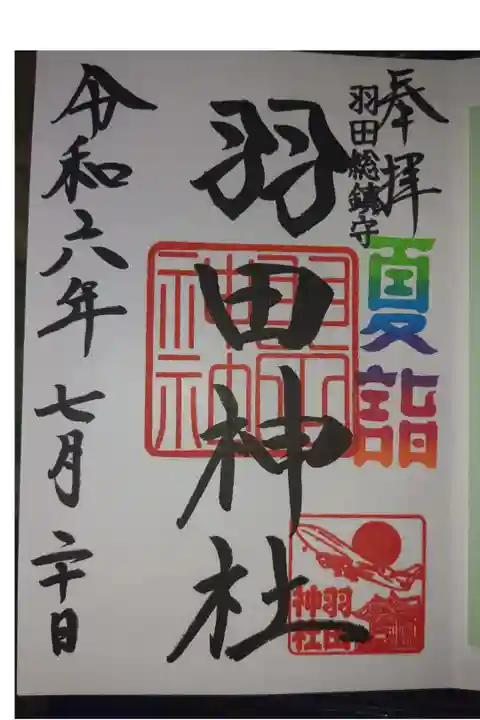 奉拝
羽田総鎮守
夏詣
羽田神社
羽田神社
羽田
神社
令和六年七月二十日